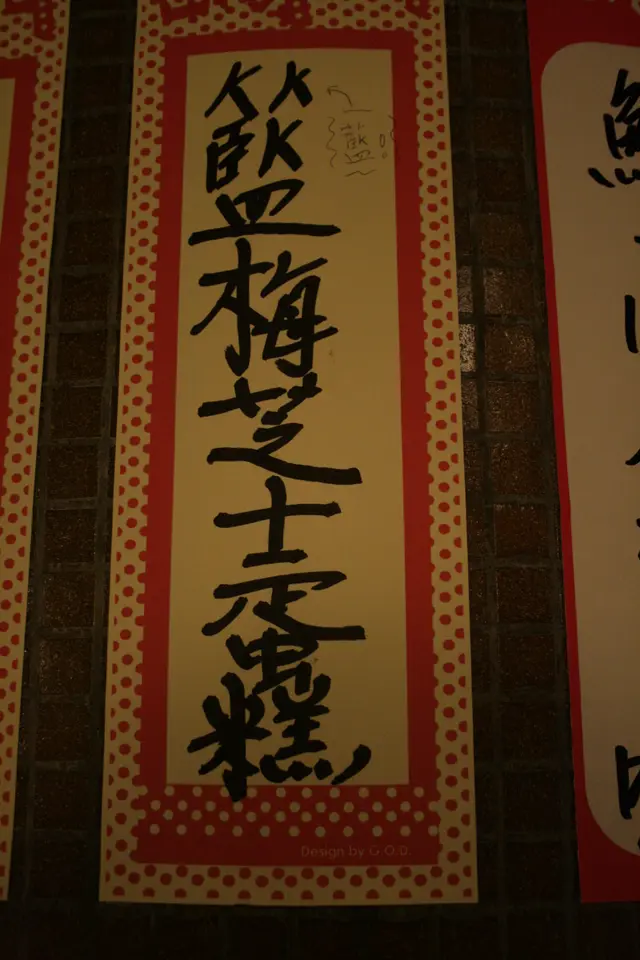 籃梅芝士蛋糕
藍!!
Design by G.O.D.